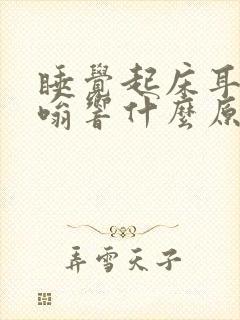 睡覺起床耳
嗡響什麼原
弄雪天子